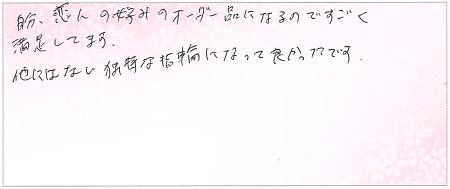 自分、恋人の好みのオーダー品になるのですごく
満足してます.
他にはない独特な指輪になって良かったです.